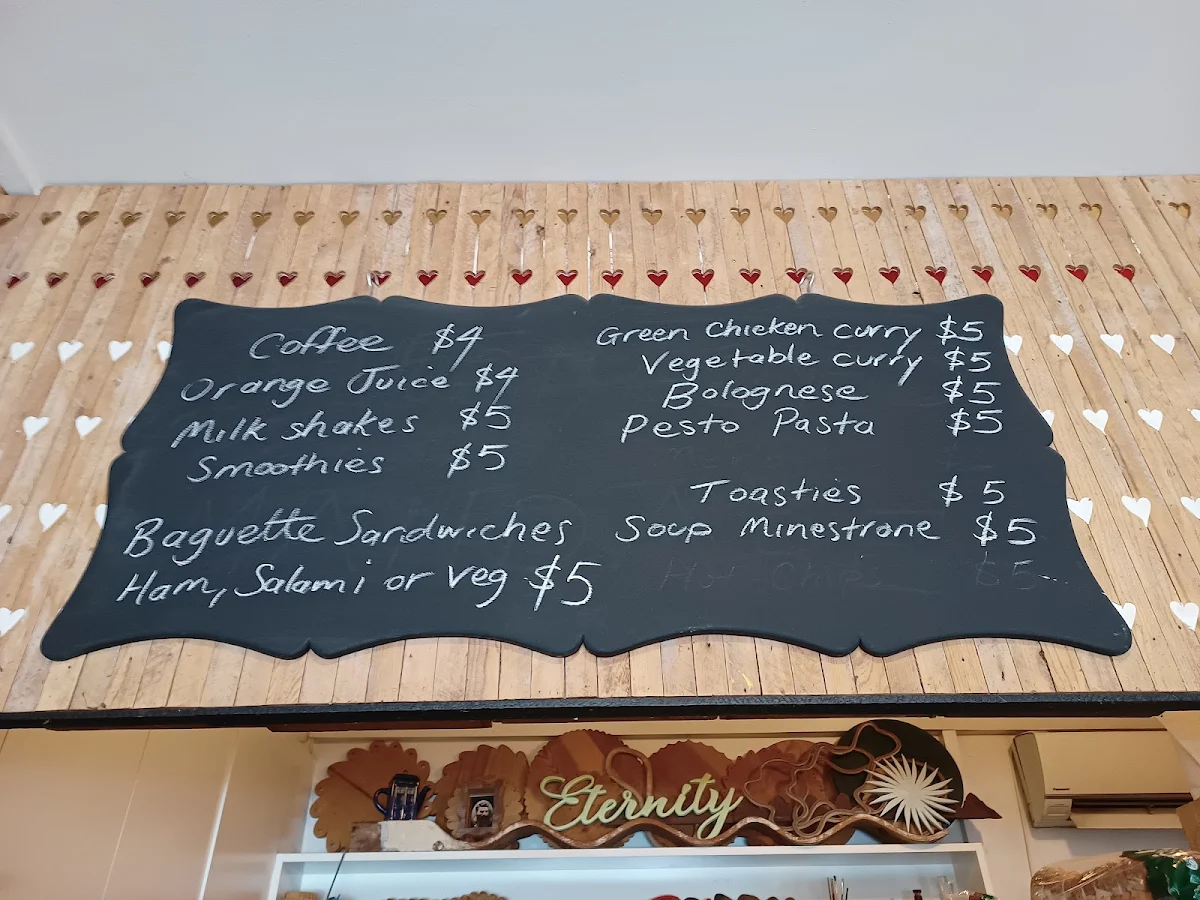 Coffee $4
Orange Juice $4
Milk shakes $5
Smoothies $5
Baguette Sandwiches
Ham, Salami or Veg $5
Green Chicken curry $5
Vegetable curry $5
Bolognese $5
Pesto Pasta $5
Toasties $5
Soup Minestrone $5
Hot $5
Eternity